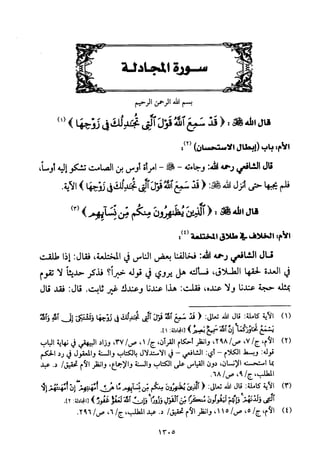 سورة المجادلة
بسم الله الرحمن الرحيم
قال الله ﷻ: ﴿ قَدْ سَمِعَ اللَّهُ قَوْلَ الَّتِي تُجَادِلُكَ فِي زَوْجِهَا ﴾ (١)
الأم: باب (إبطال الاستحسان) (٢):
قال الشافعي رحمه الله: وجاءته - ﷺ - امرأة أوس بن الصامت تشكو إليه أوساً،
فلم يجبها حتى أنزل الله ﷻ: ﴿ قَدْ سَمِعَ اللَّهُ قَوْلَ الَّتِي تُجَادِلُكَ فِي زَوْجِهَا ﴾ الآية.
قال الله ﷻ: ﴿ الَّذِينَ يُظَاهِرُونَ مِنْكُمْ مِنْ نِسَائِهِمْ ﴾ (٣)
الأم: الخلاف في طلاق المختلعة (٤):
قال الشافعي رحمه الله: فخالفنا بعض الناس في المختلعة، فقال: إذا طلقت
في العدة لحقها الطلاق، فسألته هل يروي في قوله خبراً؟ فذكر حديثاً لا تقوم
بمثله حجة عندنا ولا عنده، فقلت: هذا عندنا وعندك غير ثابت. قال: فقد قال
(١) الآية كاملة: قال الله تعالى: ﴿ قَدْ سَمِعَ اللَّهُ قَوْلَ الَّتِي تُجَادِلُكَ فِي زَوْجِهَا وَتَشْتَكِي إِلَى اللَّهِ وَاللَّهُ
يَسْمَعُ تَحَاوُرَكُمَا إِنَّ اللَّهَ سَمِيعٌ بَصِيرٌ ﴾ [المجادلة: ١].
(٢) الأم، ج/٧، ص/٢٩٨، وانظر أحكام القرآن، ج/١، ص/٣٧، وزاد البيهقي في نهاية الباب
قوله: وبسط الكلام - أي: الشافعي - في الاستدلال بالكتاب والسنة والمعقول في رد الحكم
بما استحسنه الإنسان، دون القياس على الكتاب والسنة والإجماع، وانظر الأم تحقيق/ د. عبد
المطلب، ج/٩، ص/٦٨.
(٣) الآية كاملة: قال الله تعالى: ﴿ الَّذِينَ يُظَاهِرُونَ مِنْكُمْ مِنْ نِسَائِهِمْ مَا هُنَّ أُمَّهَاتِهِمْ إِنْ أُمَّهَاتُهُمْ إِلَّا
اللَّائِي وَلَدْنَهُمْ وَإِنَّهُمْ لَيَقُولُونَ مُنْكَرًا مِنَ الْقَوْلِ وَزُورًا وَإِنَّ اللَّهَ لَعَفُوٌّ غَفُورٌ ﴾ [المجادلة: ٢].
(٤) الأم، ج/٥، ص/١١٥، وانظر الأم تحقيق/ د. عبد المطلب، ج/٦، ص/٢٩٦.
١٣٠٥